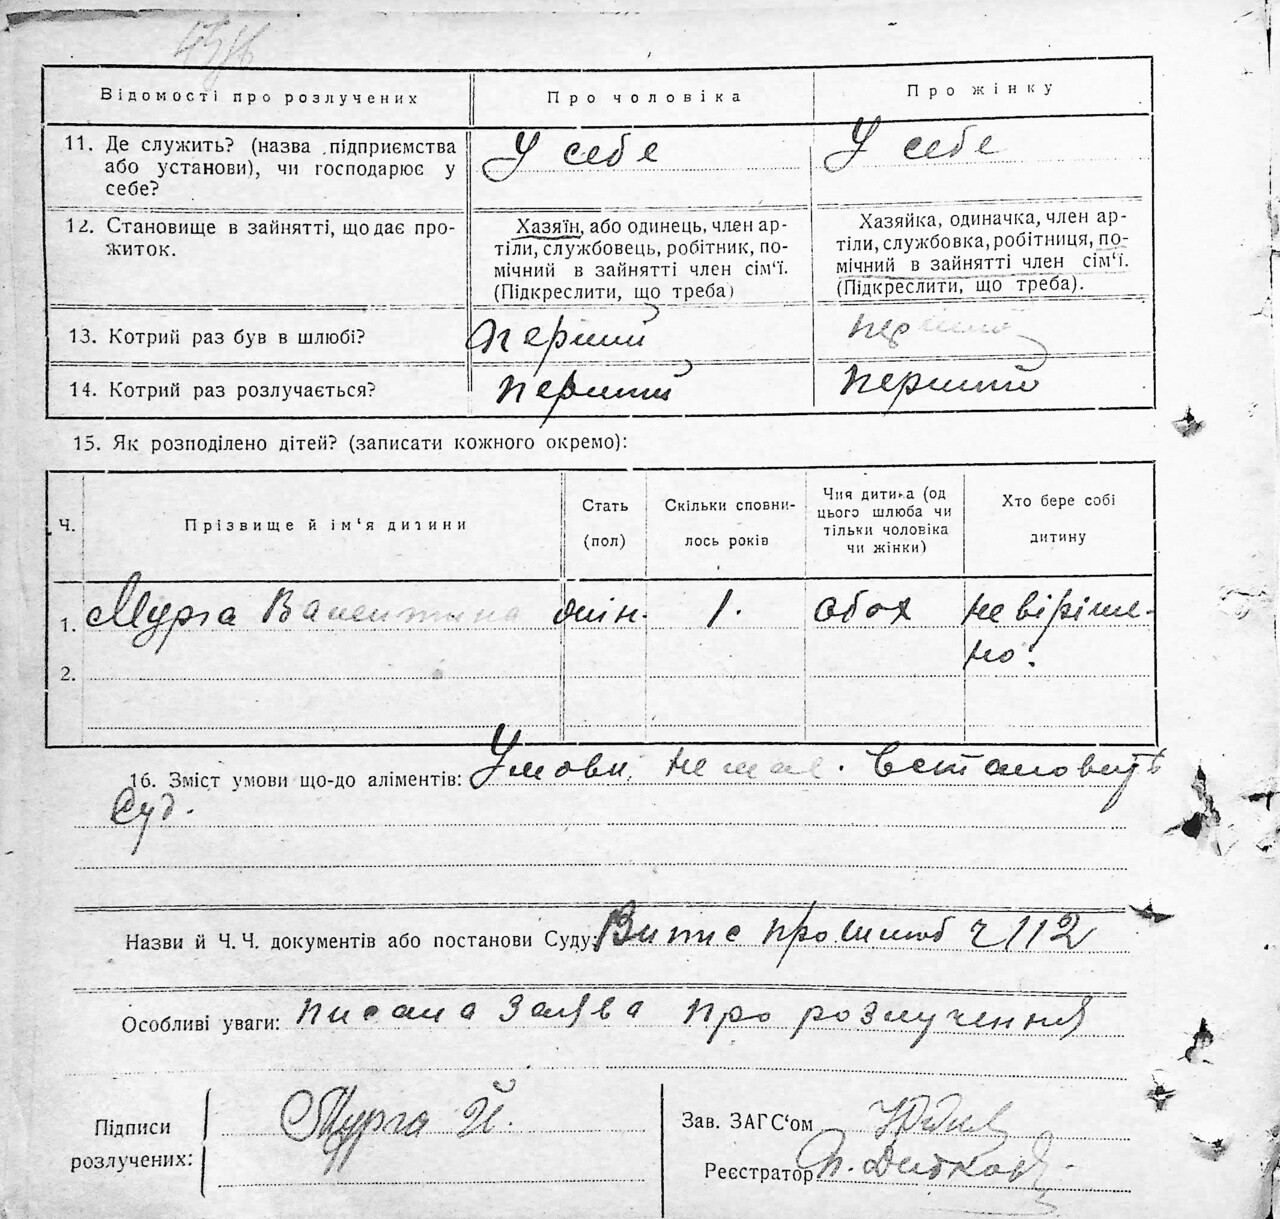 Відомості про розлучених
Про чоловіка
Про жінку
11. Де служить? (назва підприємства
або установи), чи господарює у
себе?
У себе
У себе
12. Становище в зайнятті, що дає про-
житок.
Хазяїн, або одинець, член ар-
тіли, службовець, робітник, по-
мічний в зайнятті член сім‘ї.
(Підкреслити, що треба)
Хазяйка, одиначка, член ар-
тіли, службовка, робітниця, по-
мічний в зайнятті член сім‘ї.
(Підкреслити, що треба).
13. Котрий раз був в шлюбі?
перший
перший
14. Котрий раз розлучається?
перший
перший
15. Як розподілено дітей? (записати кожного окремо):
Ч.
Прізвище й ім‘я дитини
Стать
(пол)
Скільки сповни-
лось років
Чия дитина (од
цього шлюба чи
тільки чоловіка
чи жінки)
Хто бере собі
дитину
1. Мурга Валентина жін. 1. обох не віріше-
но.
2.
16. Зміст умови що-до аліментів: Умови немає. Встановить
Суд.
Назви й Ч. Ч. документів або постанови Суду: Витис про шлюб ч 112
Особливі уваги: писана заява про розлучення
Підписи
розлучених:
Мурга Й.
Зав. ЗАГС‘ом
Реєстратор